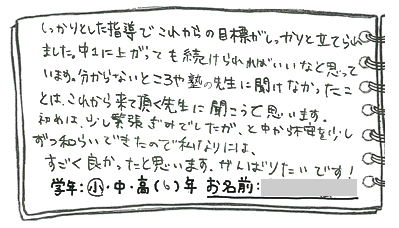 しっかりとした指導でこれからの目標がしっかりと立てられ
ました。中1に上がっても続けられればいいなと思って
います。分からないところや塾の先生に聞けなかったこ
とは、これから来て頂く先生に聞こうと思います。
初めは、少し緊張ぎみでしたが、と中から不安を少し
ずつ和らいできたので私なりには、
すごく良かったと思います。がんばりたいです!
学年:小・中・高(6)年 お名前: